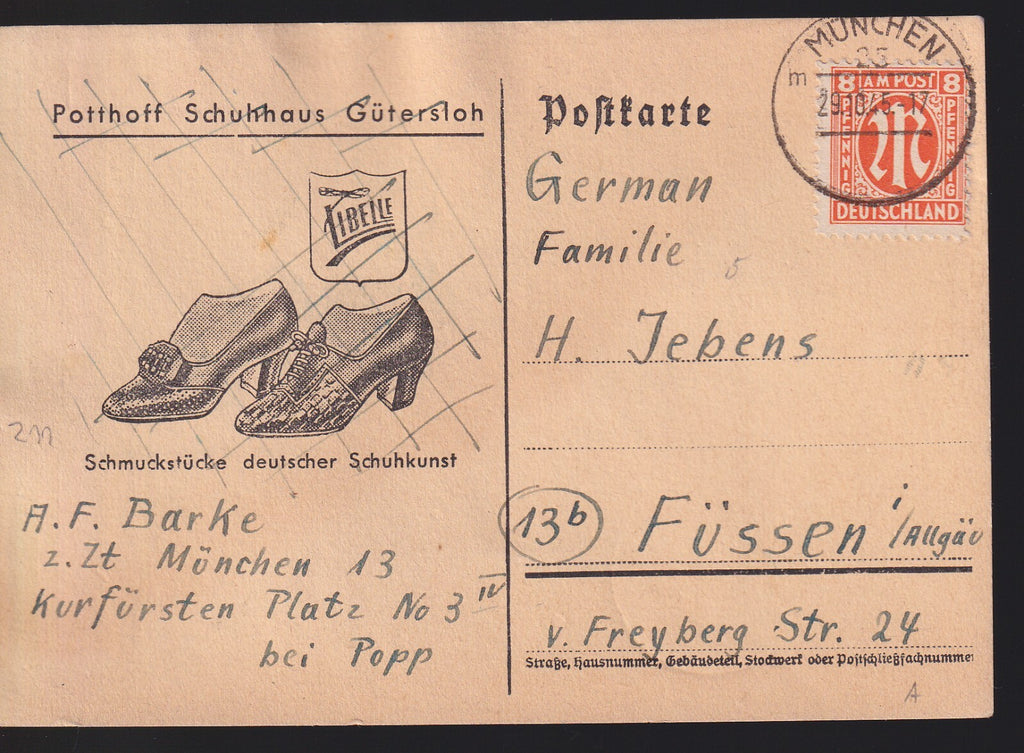 Potthoff Schuhhaus Gütersloh
LIBELLE
Schmuckstücke deutscher Schuhkunst
A. F. Barke
z. Zt München 13
Kurfürsten Platz No 3 IV
bei Popp
2n
Postkarte
MÜNCHEN
m
29.10.45-17
8 AM POST 8
PFENNIG
PFENNIG
M
DEUTSCHLAND
German
Familie
5
H. Jebens
13b Füssen i/Allgäu
v. Freyberg Str. 24
Straße, Hausnummer, Gebäudeteil, Stockwerk oder Postschließfachnummer
A